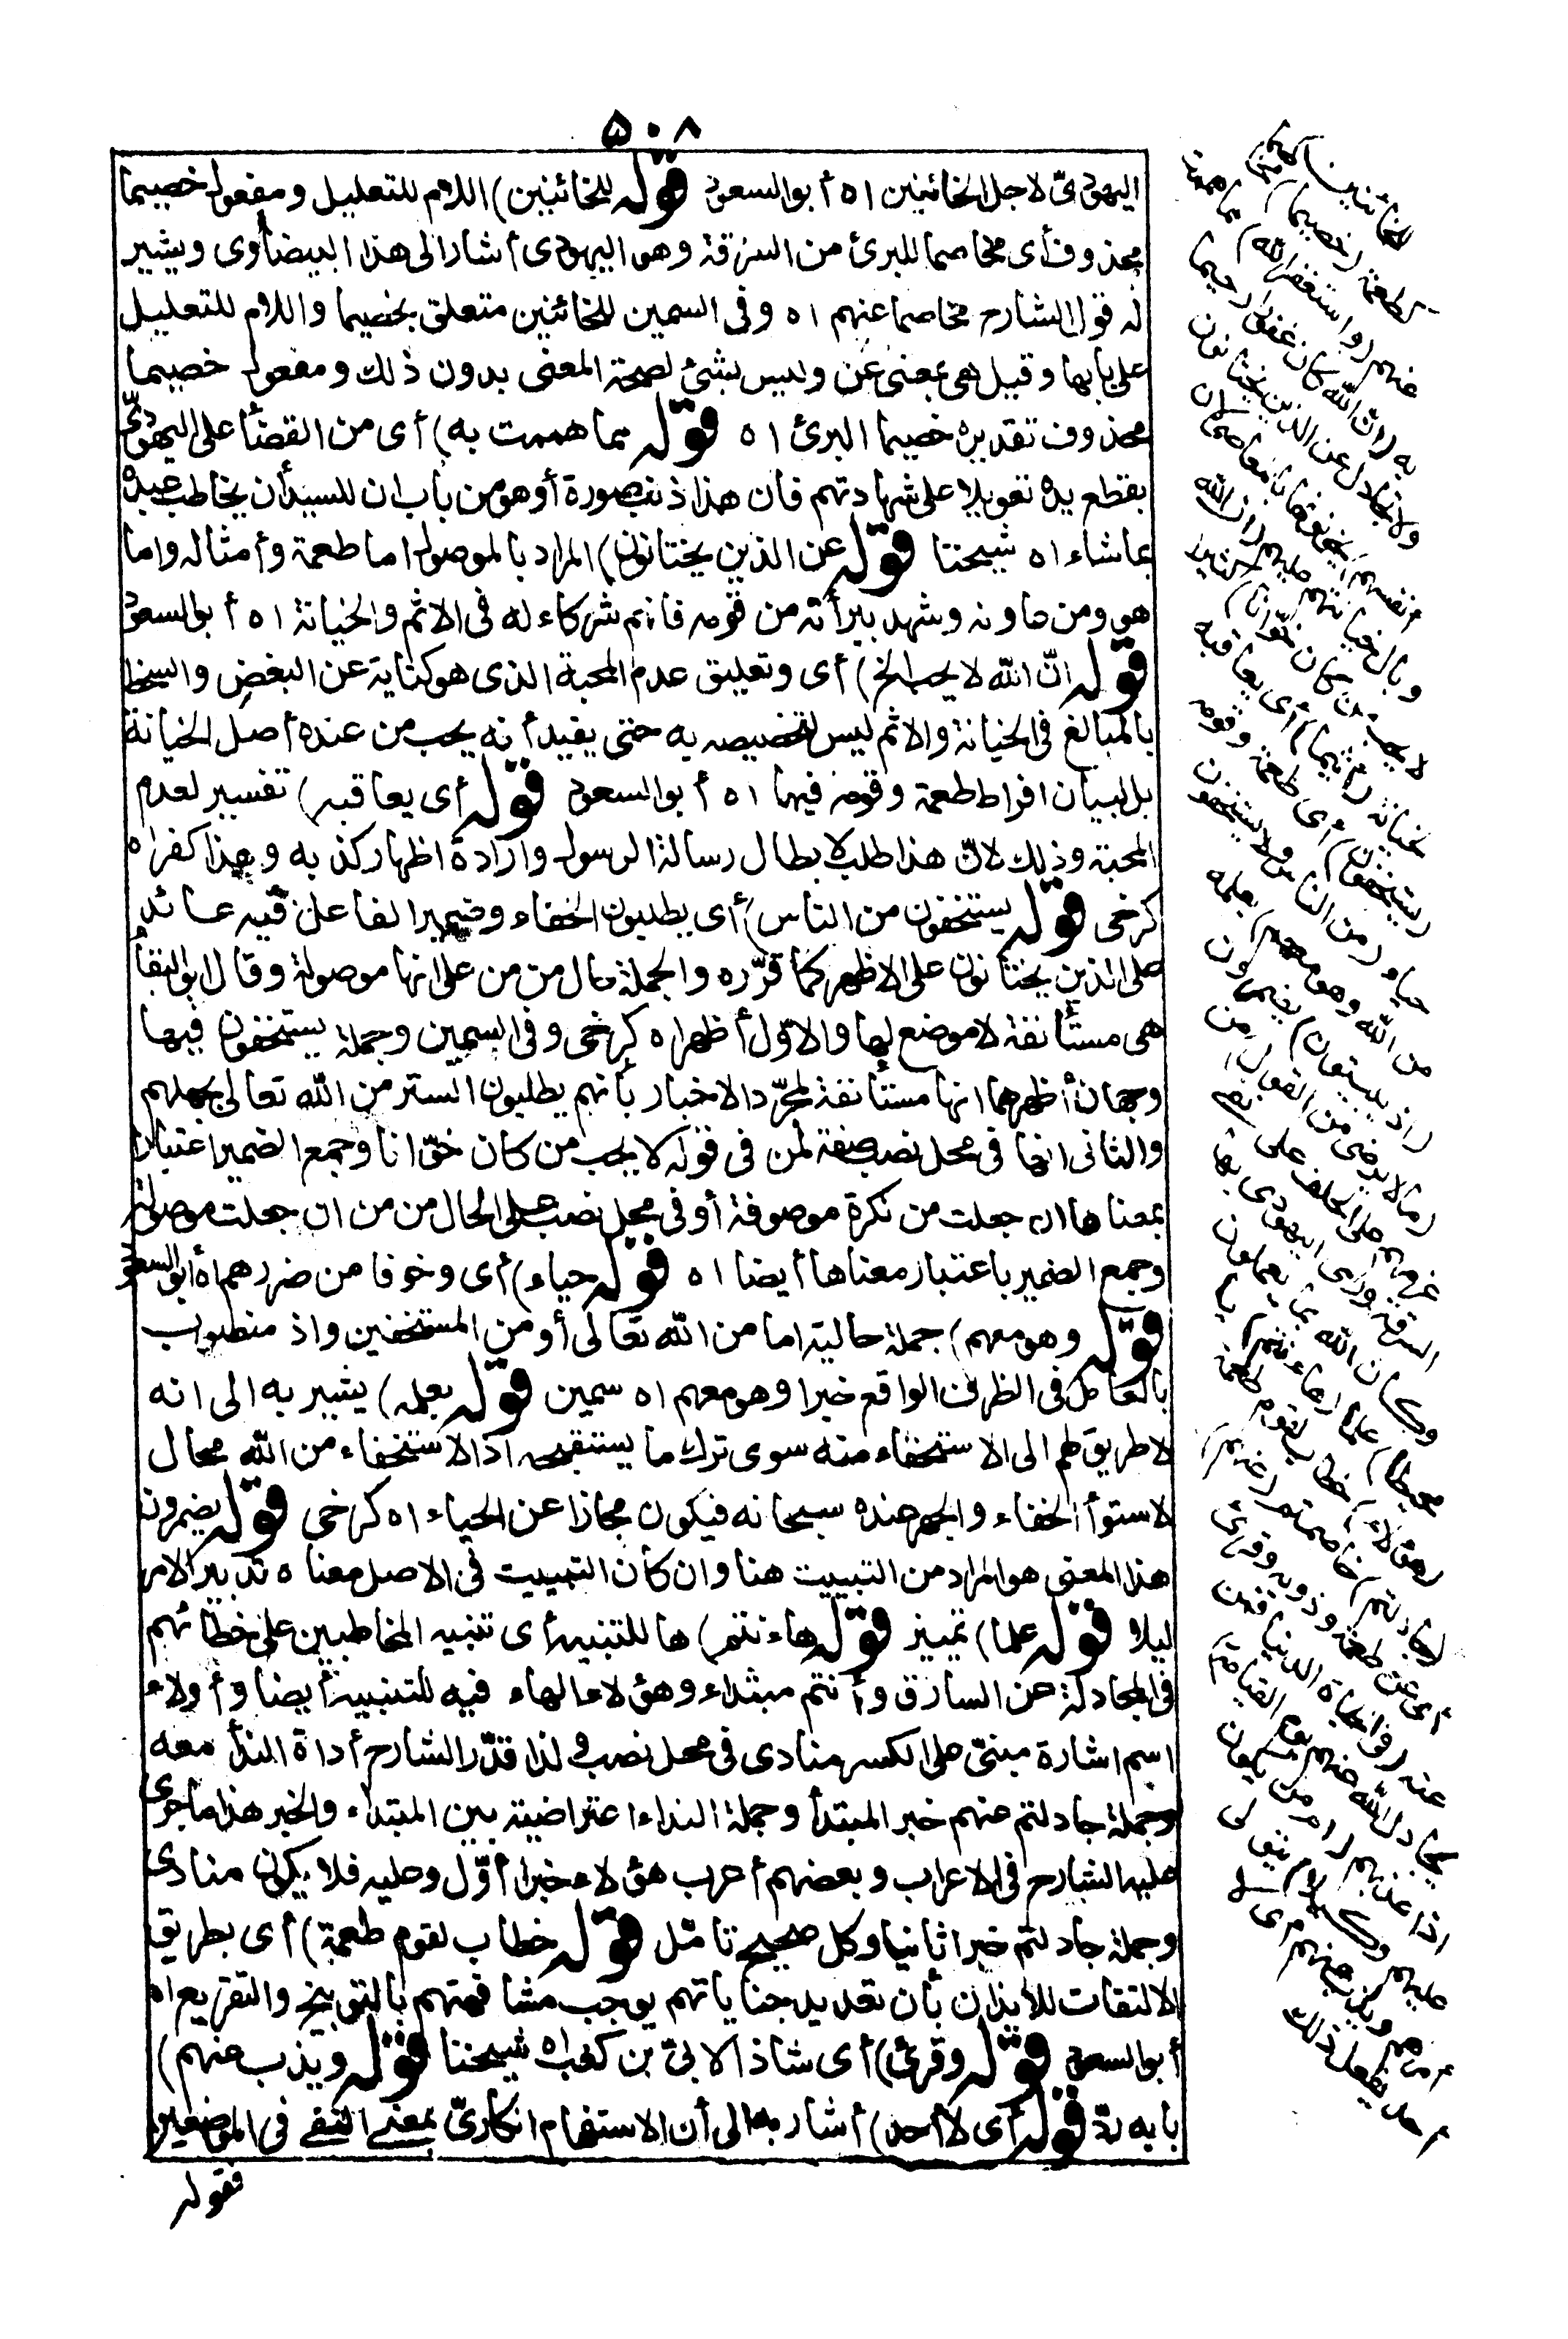 ٥٠٨
اليهودى لاجل الخائنين اه أبو السعود قوله للخائنين) اللام للتعليل ومفعول خصيما
محذوف أى مخاصما للبرئ من السرقة وهو اليهودى أشار الى هذا البيضاوى ويشير
له قول الشارح مخاصما عنهم اه وفى السمين للخائنين متعلق بخصيما واللام للتعليل
على بابها وقيل هى بمعنى عن وليس بشئ لصحة المعنى بدون ذلك ومفعول خصيما
محذوف تقديره خصيما البرئ اه قوله مما هممت به) أى من القضأ على اليهودىّ
بقطع يده تعويلا على شهادتهم فان هذا ذنب صورة أو هو من باب ان للسيد أن يخاطب عبده
بماشاء اه شيخنا قوله عن الذين يختانون) المراد بالموصول اما طعمة وأمثاله واما
هو ومن عاونه وشهد ببرأته من قومه فانهم شركاء له فى الاثم والخيانة اه أبو السعود
قوله انّ الله لا يحب الخ) أى وتعليق عدم المحبة الذى هو كناية عن البغض والسخط
بالمبالغ فى الخيانة والاثم ليس لتخصيصه به حتى يفيد أنه يحب من عنده أصل الخيانة
بل لبيان افراط طعمة وقومه فيهما اه أبو السعود قوله أى يعاقبه) تفسير لعدم
المحبة وذلك لانّ هذا طلب لابطال رسالة الرسول وارادة اظهار كذبه وهذا كفر اه
كرخى قوله يستخفون من الناس) أى يطلبون الخفاء وضمير الفاعل فيه عائد
على الذين يختانون على الاظهر كما قرّره والجملة حال من من على انها موصولة وقال ابو البقأ
هى مستأنفة لا موضع لها والاوّل أظهر اه كرخى وفى السمين وجملة يستخفون فيها
وجهان أظهرهما انها مستأنفة لمجرّد الاخبار بأنهم يطلبون الستر من الله تعالى بجهلهم
والثانى انها فى محل نصب صفة لمن فى قوله لا يحب من كان خوّانا وجمع الضمير اعتبارا
بمعناها ان جعلت من نكرة موصوفة أو فى محل نصب على الحال من من ان جعلت موصولة
وجمع الضمير باعتبار معناها أيضا اه قوله حياء) أى وخوفا من ضررهم اه أبو السعود
قوله وهو معهم) جملة حالية اما من الله تعالى أو من المستخفين واذ منصوب
بالعامل فى الظرف الواقع خبرا وهو معهم اه سمين قوله بعلمه) يشير به الى انه
لا طريق لهم الى الاستخفاء منه سوى ترك ما يستقبحه اذ الاستخفاء من الله محال
لاستوأ الخفاء والجهر عنده سبحانه فيكون مجازا عن الحياء اه كرخى قوله يضمرون
هذا المعنى هو المراد من التبييت هنا وان كان التبييت فى الاصل معناه تدبير الامر
ليلا قوله علما) تمييز قوله هاءنتم) ها للتنبيه أى تنبيه المخاطبين على خطائهم
فى المجادلة عن السارق وأنتم مبتداء وهؤلاء الهاء فيه للتنبيه أيضا وأولاء
اسم اشارة مبنىّ على الكسر منادى فى محل نصب ولذا قدّر الشارح أداة الندأ معه
وجملة جادلتم عنهم خبر المبتدأ وجملة النداء اعتراضية بين المبتداء والخبر هذا ما جرى
عليه الشارح فى الاعراب وبعضهم أعرب هؤلاء خبرا أوّل وعليه فلا يكون منادى
وجملة جادلتم خبرا ثانيا وكل صحيح تامّل قوله خطاب لقوم طعمة) أى بطريق
الالتفات للايذان بأن تعديد جناياتهم يوجب مشافهتهم بالتوبيخ والتقريع اه
أبو السعود قوله وقرئ) أى شاذا لابىّ بن كعب اه شيخنا قوله ويذب عنهم)
بابه ردّ قوله أى لا أحد) أشار به الى أن الاستفهام انكارىّ بمعنى النفى فى الموضعين
فقوله
للخائنين)
كطعمة (خصيما) مخاصما
عنهم (واستغفر الله) مما هممت
به (ان الله كان غفورا رحيما
ولا تجادل عن الذين يختانون
أنفسهم) يخونونها بالمعاصى لان
وبال خيانتهم عليهم (ان الله
لا يحب من كان خوّانا) كثير
الخيانة (أثيما) أى يعاقبه
(يستخفون) أى طعمة وقومه
حياء (من الناس ولا يستخفون
من الله وهو معهم) بعلمه
(اذ يبيتون) يضمرون
(ما لا يرضى من القول) من
عزمهم على الحلف على نفى
السرقة ورمى اليهودى بها
(وكان الله بما يعملون
محيطا) علما (هاءنتم) يا
(هؤلاء) خطاب لقوم طعمة
(جادلتم) خاصمتم (عنهم)
أى عن طعمة وذويه وقرئ
عنه (فى الحياة الدنيا فمن
يجادل الله عنهم يوم القيامة)
اذا عذبهم (أم من يكون
عليهم وكيلا) يتولى
أمرهم ويذب عنهم أى لا
أحد يفعل ذلك